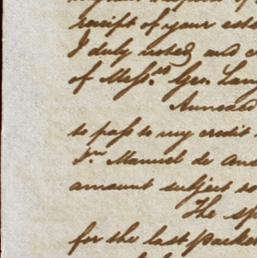 receipt of your este
I duly noted, and c
of Mess.rs Geo. Lang
Annexed
to pass to my credit
J.n Manuel de And
amount subject to
The sp
for the last Packet